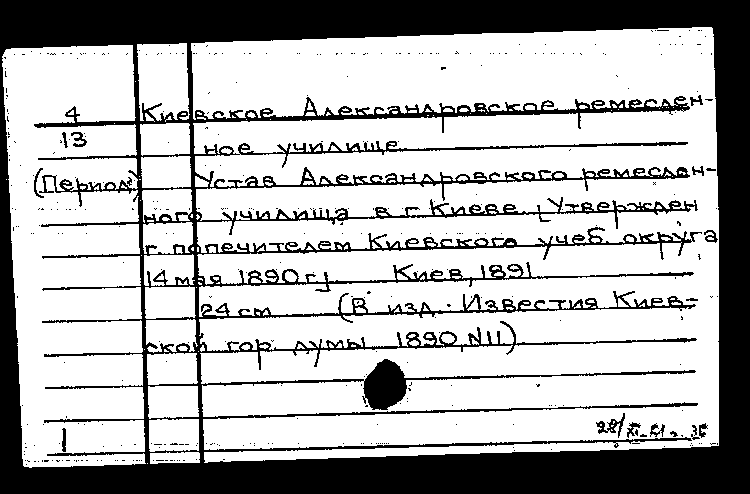 4 Киевское Александровское ремеслен-
13 ное училище
(Период.) Устав Александровского ремеслен-
ного училища в г. Киеве. [Утвержден
г. попечителем Киевского учеб. округа
14 мая 1890 г.] Киев, 1891
24 см (В изд.: Известия Киев-
ской гор. думы 1890, №11)
1 28/XI-51г.